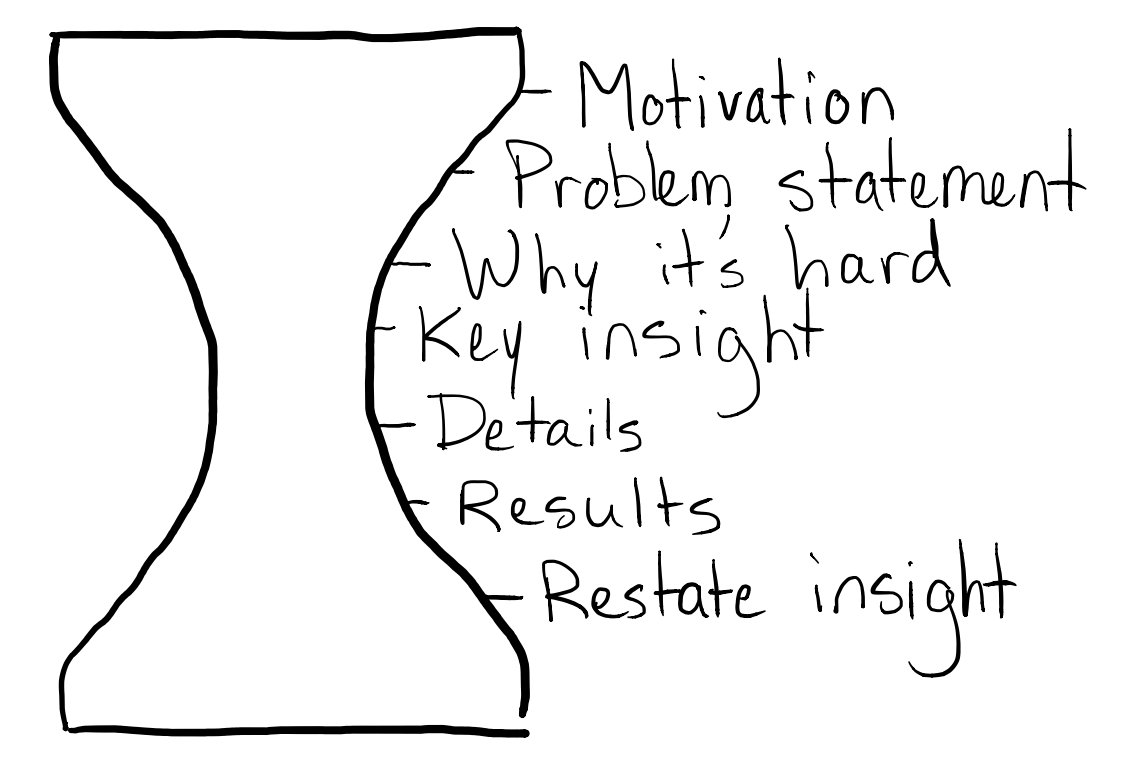 Motivation
Problem statement
Why it's hard
Key insight
Details
Results
Restate insight